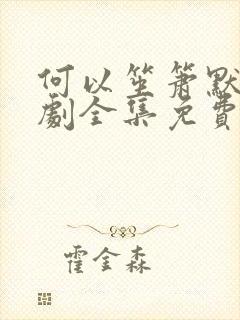 何以笙箫默
劇全集免費
霍金森